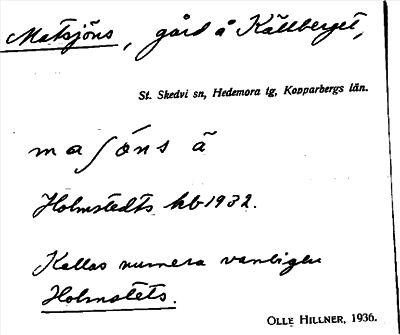 Matsjöns, gård å Källberget,
St. Skedvi sn, Hedemora tg, Kopparbergs län.
ma∫óns ä
Holmstedts kb 1932.
Kallas numera vanligen
Holmstets.
OLLE HILLNER, 1936.